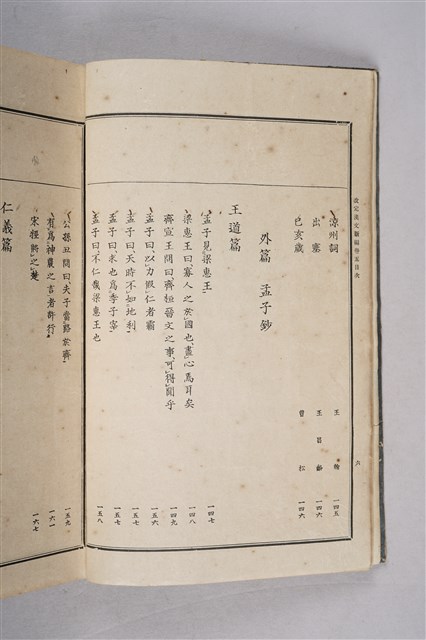 涼州詞 王翰 一四五
出塞 王昌齡 一四六
己亥歲 曹松 一四六
外篇 孟子鈔
王道篇
孟子見梁惠王 一四七
梁惠王曰寡人之於國也盡心焉耳矣 一四八
齊宣王問曰齊桓晉文之事可得聞乎 一四九
孟子曰以力假仁者霸 一五六
孟子曰天時不如地利 一五七
孟子曰求也爲季子宰 一五七
孟子曰不仁哉梁惠王也 一五八
仁義篇
公孫丑問曰夫子當路於齊 一五九
有爲神農之言者許行 一六一
宋牼將之楚 一六七